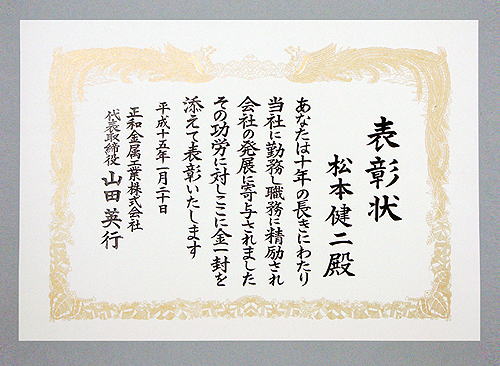 表彰状
松本健二殿
あなたは十年の長きにわたり
当社に勤務し職務に精励され
会社の発展に寄与されました
その功労に対しここに金一封を
添えて表彰いたします
平成十五年一月二十日
正和金属工業株式会社
代表取締役 山田英行